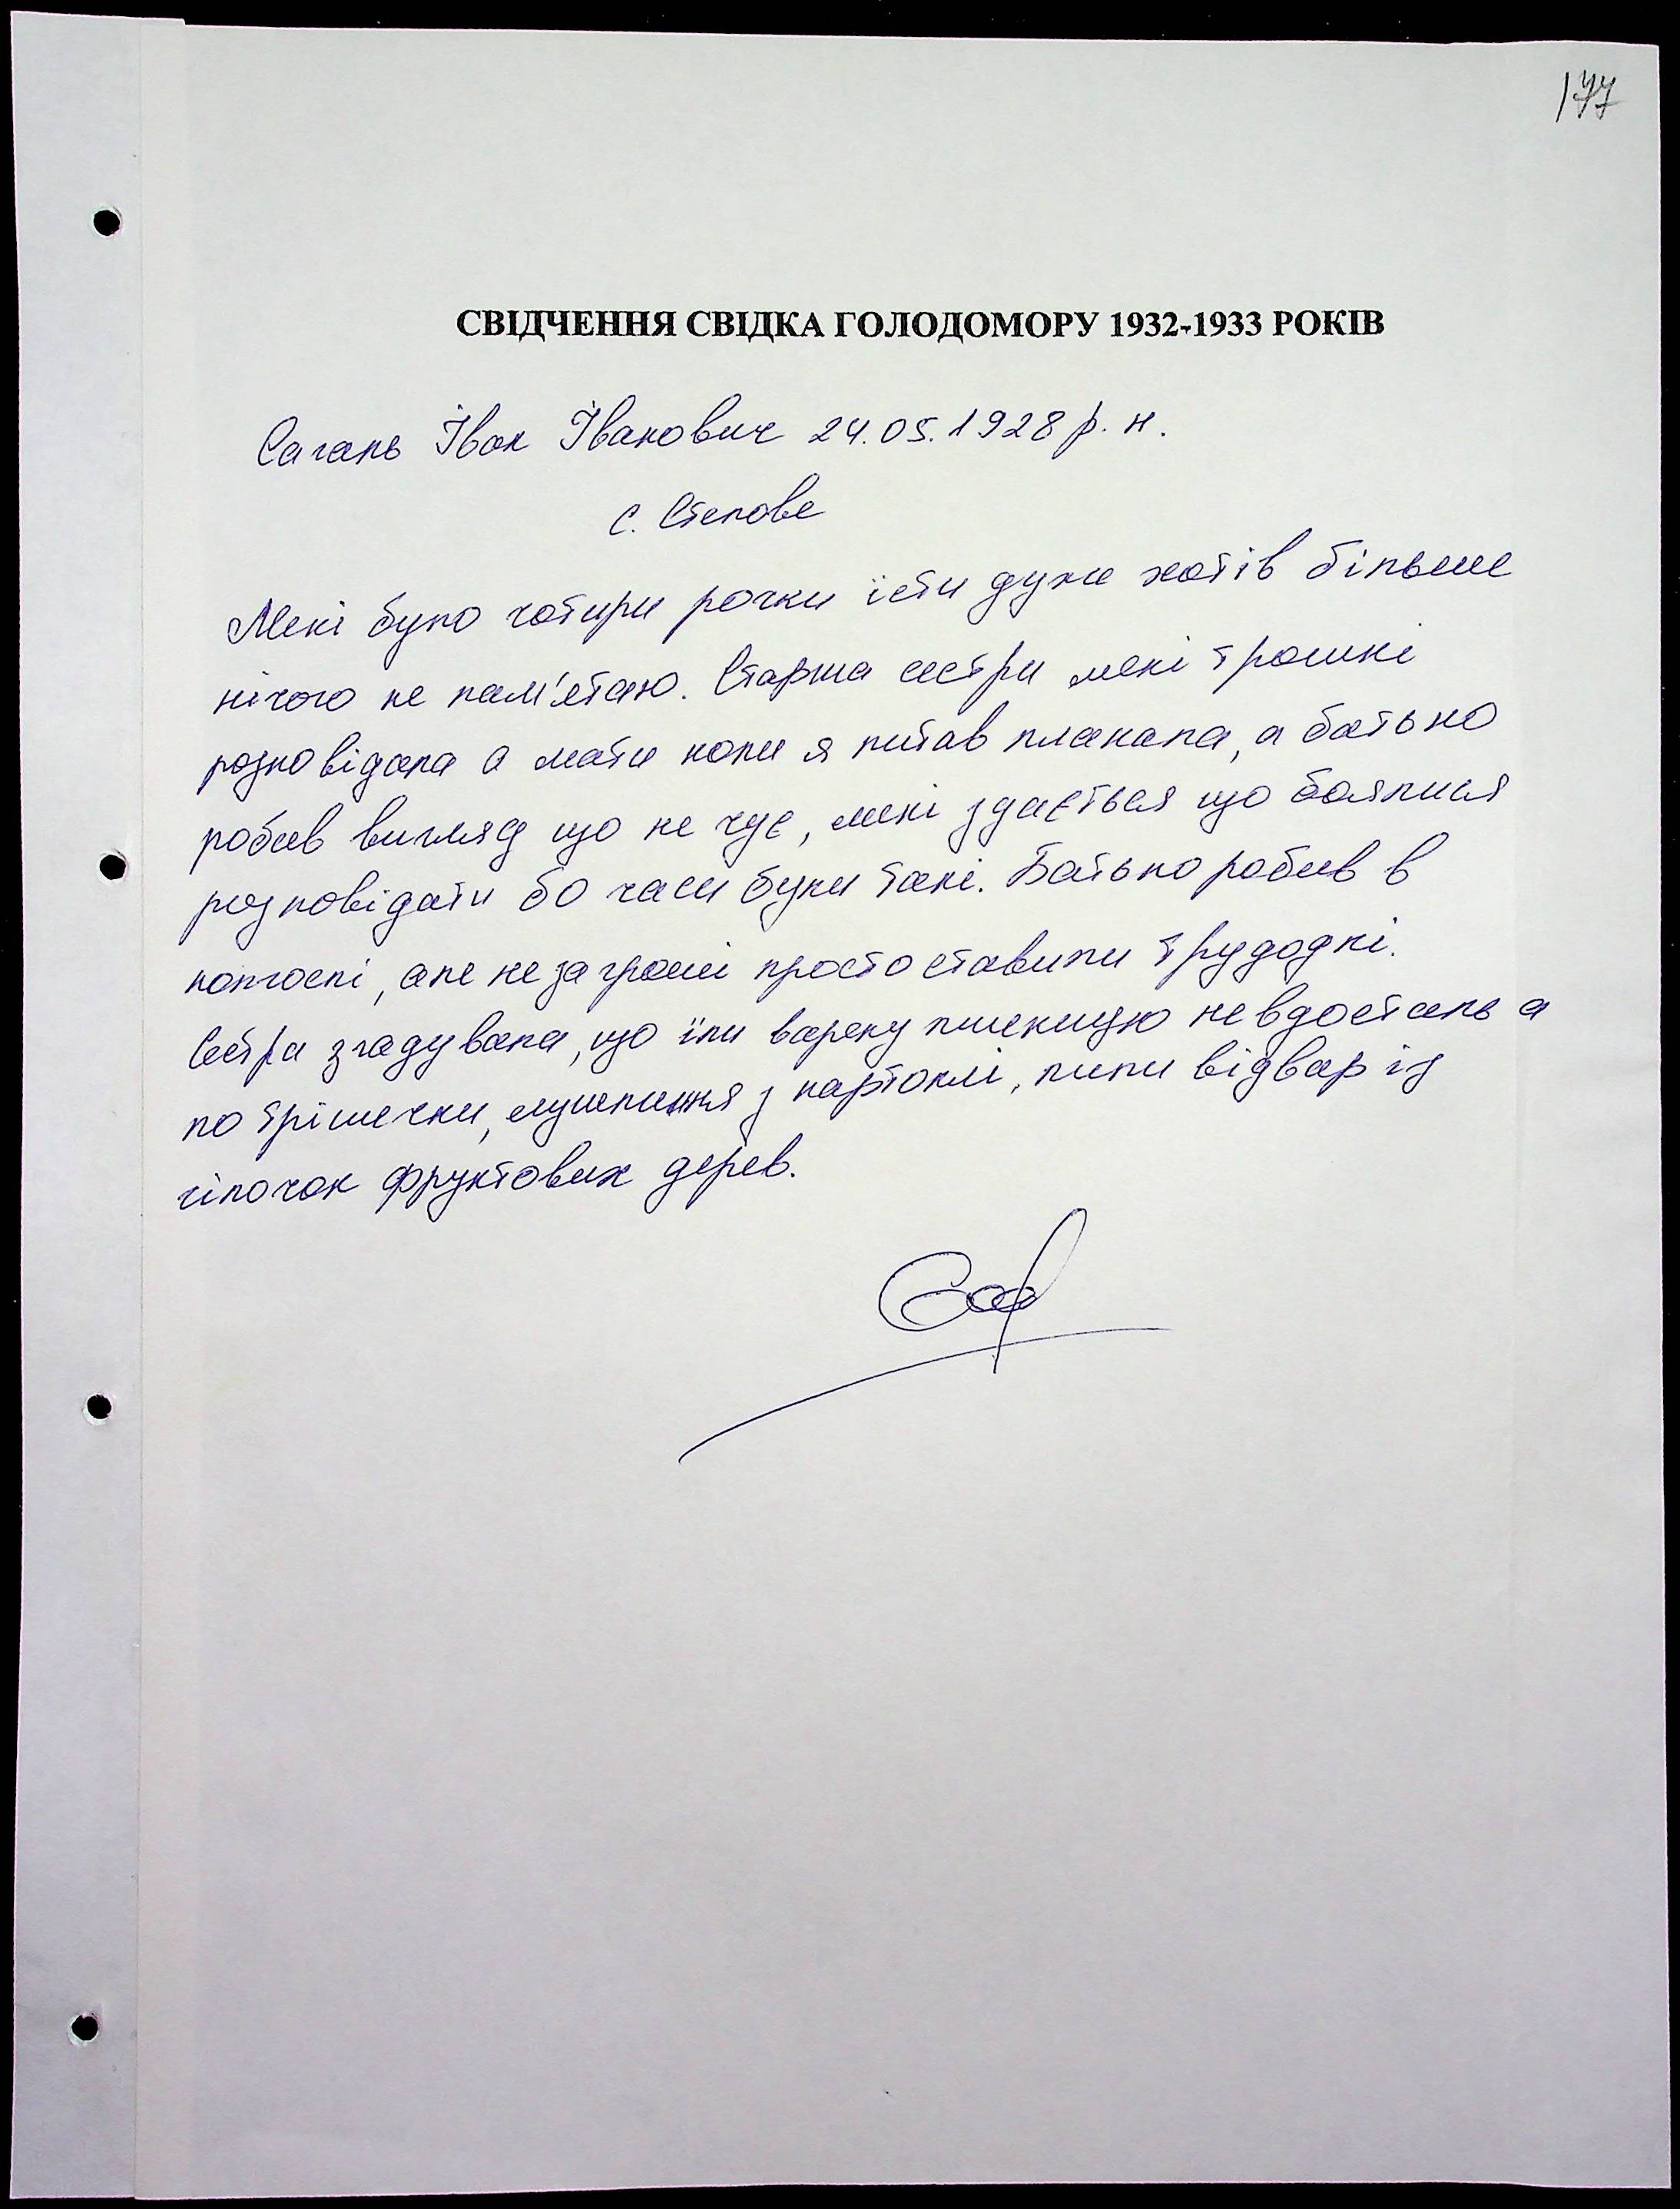 177
СВІДЧЕННЯ СВІДКА ГОЛОДОМОРУ 1932-1933 РОКІВ
Сагань Іван Іванович 24.05.1928 р. н.
с. Степове
Мені було чотири рочки їсти дуже хотів більше
нічого не пам'ятаю. Старша сестра мені трошкі
розповідала а мати коли я питав плакала, а батько
робив вигляд що не чує, мені здається що боялися
розповідати бо часи були такі. Батько робив в
колгоспі, але не за гроші просто ставили трудодні.
Сестра згадувала, що їли варену пшеницю не вдосталь а
по трішечки, лушпиння з картоплі, пили відвар із
гілочок фруктових дерев.